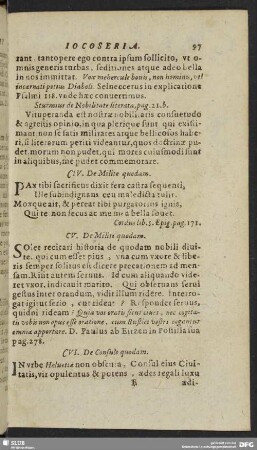 IOCOSERIA. 97
rant. tantopere ego contra ipsum sollicito, vt
omnis generis turbas, seditiones atque adeo bella
in nos immittat. Vox mehercule bonis, non homine, vel
incarnati potius Diaboli. Selneccerus in explicatione
Psalmi 118. vnde hæc conuertimus.
Sturmius de Nobilitate literata, pag. 21. b.
Vituperanda est nostræ nobilitatis consuetudo
& agrestis opinio, in qua plerique sunt, qui existi-
mant, non se satis militares atque bellicosos habe-
ri, si literarum periti videantur, quos doctrinæ pu-
det morum non pudet, qui mores cuiusmodi sunt
in aliquibus, me pudet commemorare.
CIV. De Milite quodam.
PAx tibi sacrificus dixit fera castra sequenti,
Ille subindignans ceu maledicta tulit.
Moxque ait, & pereat tibi purgatorius ignis,
Qui te non secus at me mea bella fouet.
Cordus lib. 5. Epig. pag. 171.
CV. De Milite quodam.
SOlet recitari historia de quodam nobili diui-
te, qui cum esset pius, vna cum vxore & libe-
ris semper solitus est dicere precationem ad men-
sam. Risit autem seruus. Id cum aliquando vide-
ret vxor, indicauit marito. Qui obseruans serui
gestus inter orandum, vidit illum ridere. Interro-
gat igitur seruum, cur rideat? Respondet seruus,
quidni rideam? Quia vos oratis sicut ciues, nec cogita-
tis vobis non opus esse oratione, cum Rustici vestri cogantur
omnia apportare. D. Paulus ab Eitzen in Postilla sua
pag. 278.
CVI. De Consule quodam.
IN vrbe Heluetiæ non obscura, Consul eius Ciui-
tatis, vir opulentus & potens, ædes regali luxu
E adi-
SLUB
DFG